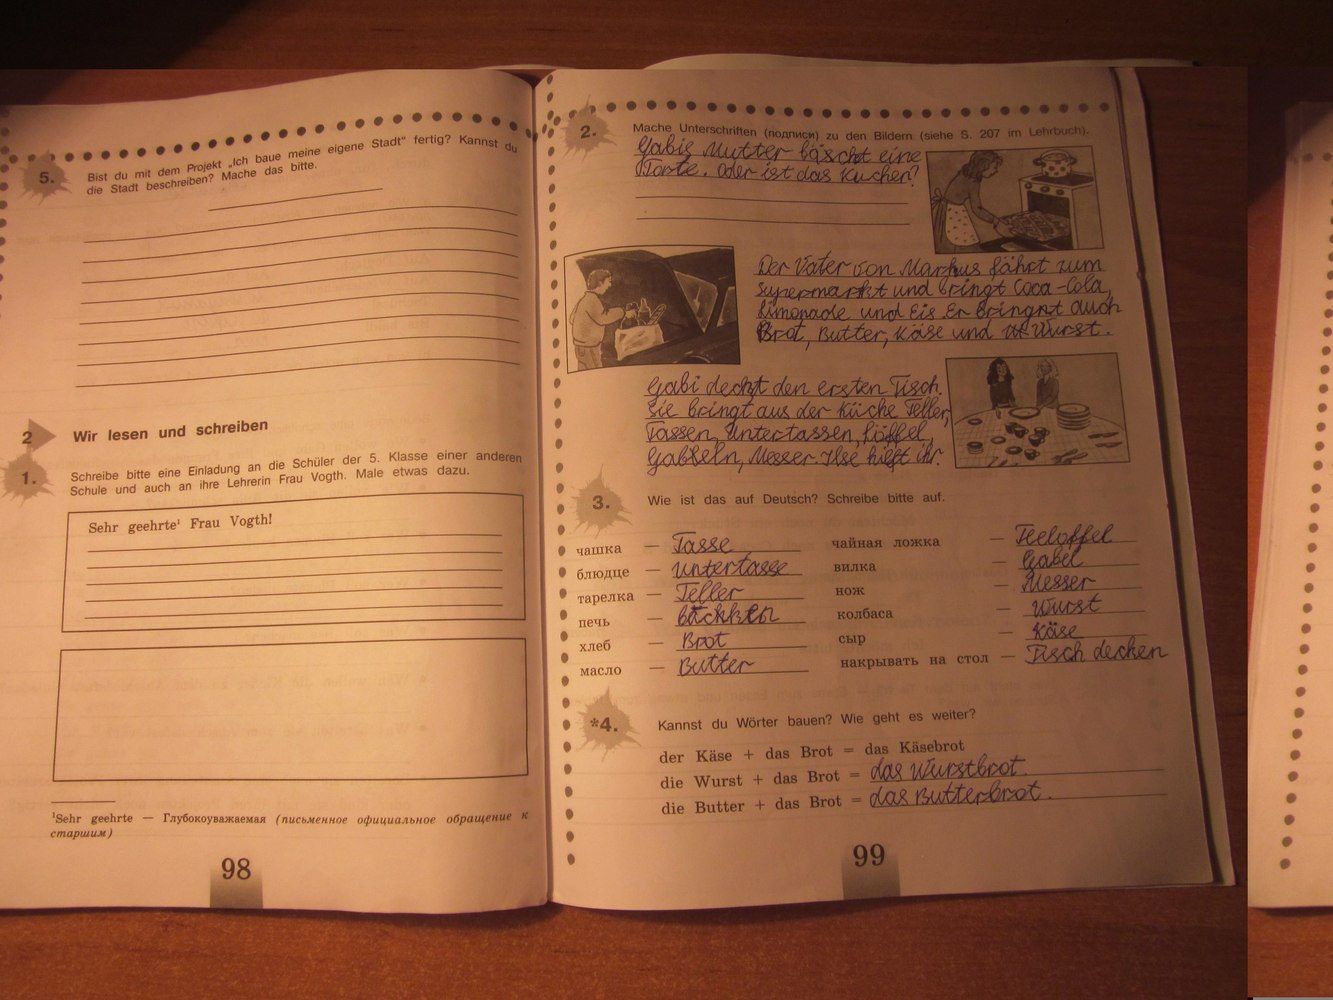 5.
Bist du mit dem Projekt „Ich baue meine eigene Stadt" fertig? Kannst du
die Stadt beschreiben? Mache das bitte.
2 Wir lesen und schreiben
1.
Schreibe bitte eine Einladung an die Schüler der 5. Klasse einer anderen
Schule und auch an ihre Lehrerin Frau Vogth. Male etwas dazu.
Sehr geehrte¹ Frau Vogth!
¹Sehr geehrte — Глубокоуважаемая (письменное официальное обращение к
старшим)
98
2.
Mache Unterschriften (подписи) zu den Bildern (siehe S. 207 im Lehrbuch).
Gabis Mutter bäckt eine
Torte. Oder ist das Kuchen?
Der Vater von Markus fährt zum
Supermarkt und bringt Coca-Cola,
Limonade und Eis. Er bringt auch
Brot, Butter, Käse und Wurst.
Gabi deckt den ersten Tisch.
Sie bringt aus der Küche Teller,
Tassen, Untertassen, Löffel,
Gabeln, Messer. Ilse hilft ihr.
3.
Wie ist das auf Deutsch? Schreibe bitte auf.
чашка — Tasse
блюдце — Untertasse
тарелка — Teller
печь —
хлеб — Brot
масло — Butter
чайная ложка — Teeloffel
вилка — Gabel
нож — Messer
колбаса — Wurst
сыр — Käse
накрывать на стол — Tisch decken
*4.
Kannst du Wörter bauen? Wie geht es weiter?
der Käse + das Brot = das Käsebrot
die Wurst + das Brot = das Wurstbrot.
die Butter + das Brot = das Butterbrot.
99